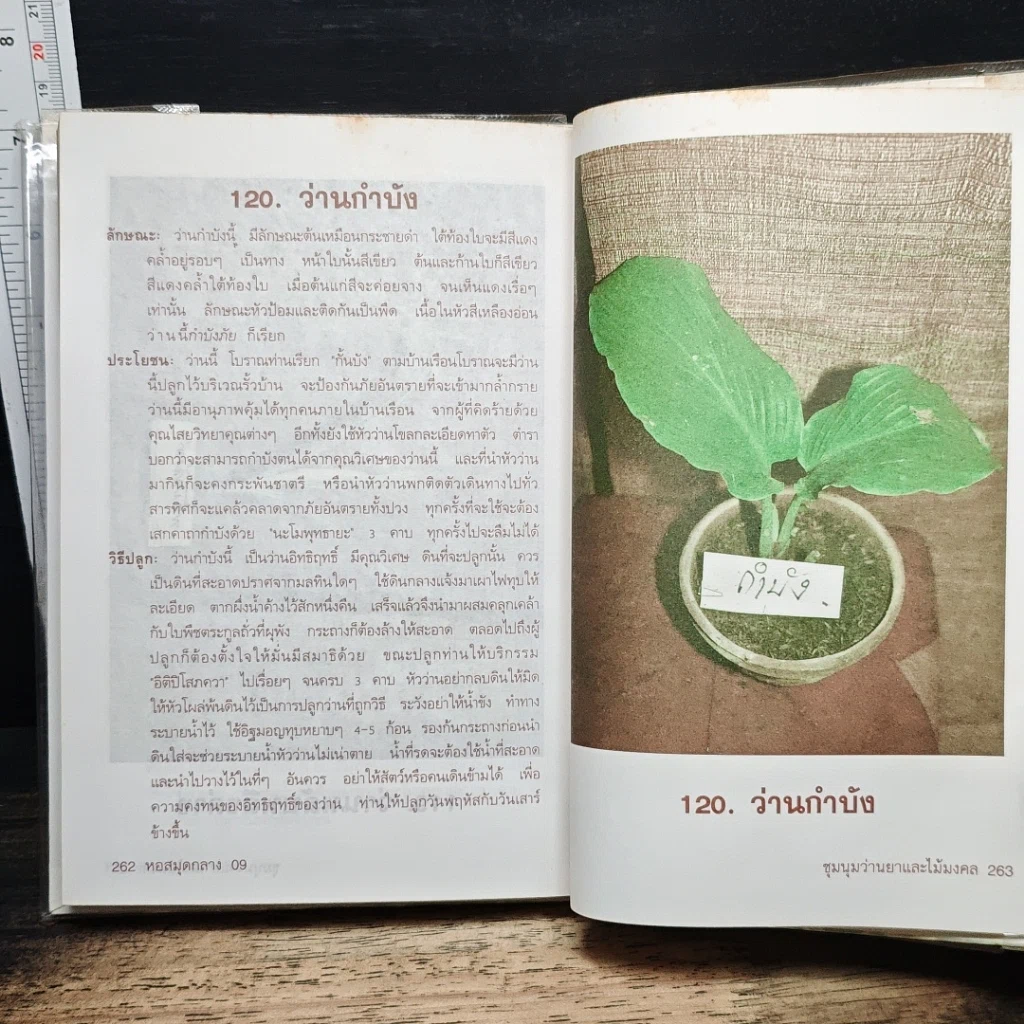 120. ว่านกำบัง
ลักษณะ: ว่านกำบังนี้ มีลักษณะต้นเหมือนกระชายดำ ใต้ท้องใบจะมีสีแดง
คล้ำอยู่รอบๆ เป็นทาง หน้าใบนั้นสีเขียว ต้นและก้านใบก็สีเขียว
สีแดงคล้ำใต้ท้องใบ เมื่อต้นแก่สีจะค่อยจาง จนเห็นแดงเรื่อๆ
เท่านั้น ลักษณะหัวป้อมและติดกันเป็นพืด เนื้อในหัวสีเหลืองอ่อน
ว่านนี้กำบังภัย ก็เรียก
ประโยชน: ว่านนี้ โบราณท่านเรียก "กั้นบัง" ตามบ้านเรือนโบราณจะมีว่าน
นี้ปลูกไว้บริเวณรั้วบ้าน จะป้องกันภัยอันตรายที่จะเข้ามากล้ำกราย
ว่านนี้มีอานุภาพคุ้มได้ทุกคนภายในบ้านเรือน จากผู้ที่คิดร้ายด้วย
คุณไสยวิทยาคุณต่างๆ อีกทั้งยังใช้หัวว่านโขลกละเอียดทาตัว ตำรา
บอกว่าจะสามารถกำบังตนได้จากคุณวิเศษของว่านนี้ และที่นำหัวว่าน
มากินก็จะคงกระพันชาตรี หรือนำหัวว่านพกติดตัวเดินทางไปทั่ว
สารทิศก็จะแคล้วคลาดจากภัยอันตรายทั้งปวง ทุกครั้งที่จะใช้จะต้อง
เสกคาถากำบังด้วย "นะโมพุทธายะ" 3 คาบ ทุกครั้งไปจะลืมไม่ได้
วิธีปลูก: ว่านกำบังนี้ เป็นว่านอิทธิฤทธิ์ มีคุณวิเศษ ดินที่จะปลูกนั้น ควร
เป็นดินที่สะอาดปราศจากมลทินใดๆ ใช้ดินกลางแจ้งมาเผาไฟทุบให้
ละเอียด ตากผึ่งน้ำค้างไว้สักหนึ่งคืน เสร็จแล้วจึงนำมาผสมคลุกเคล้า
กับใบพืชตระกูลถั่วที่ผุพัง กระถางก็ต้องล้างให้สะอาด ตลอดไปถึงผู้
ปลูกก็ต้องตั้งใจให้มั่นมีสมาธิด้วย ขณะปลูกท่านให้บริกรรม
"อิติปิโสภควา" ไปเรื่อยๆ จนครบ 3 คาบ หัวว่านอย่ากลบดินให้มิด
ให้หัวโผล่พ้นดินไว้เป็นการปลูกว่านที่ถูกวิธี ระวังอย่าให้น้ำขัง ทำทาง
ระบายน้ำไว้ ใช้อิฐมอญทุบหยาบๆ 4-5 ก้อน รองก้นกระถางก่อนนำ
ดินใส่จะช่วยระบายน้ำหัวว่านไม่เน่าตาย น้ำที่รดจะต้องใช้น้ำที่สะอาด
และนำไปวางไว้ในที่ๆ อันควร อย่าให้สัตว์หรือคนเดินข้ามได้ เพื่อ
ความคงทนของอิทธิฤทธิ์ของว่าน ท่านให้ปลูกวันพฤหัสกับวันเสาร์
ข้างขึ้น
262 หอสมุดกลาง 09
กำบัง
120. ว่านกำบัง
ชุมนุมว่านยาและไม้มงคล 263
8
7
21
20
19